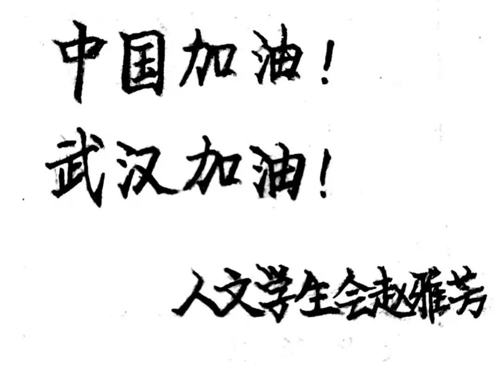 中国加油！
武汉加油！
人文学生会赵雅芳